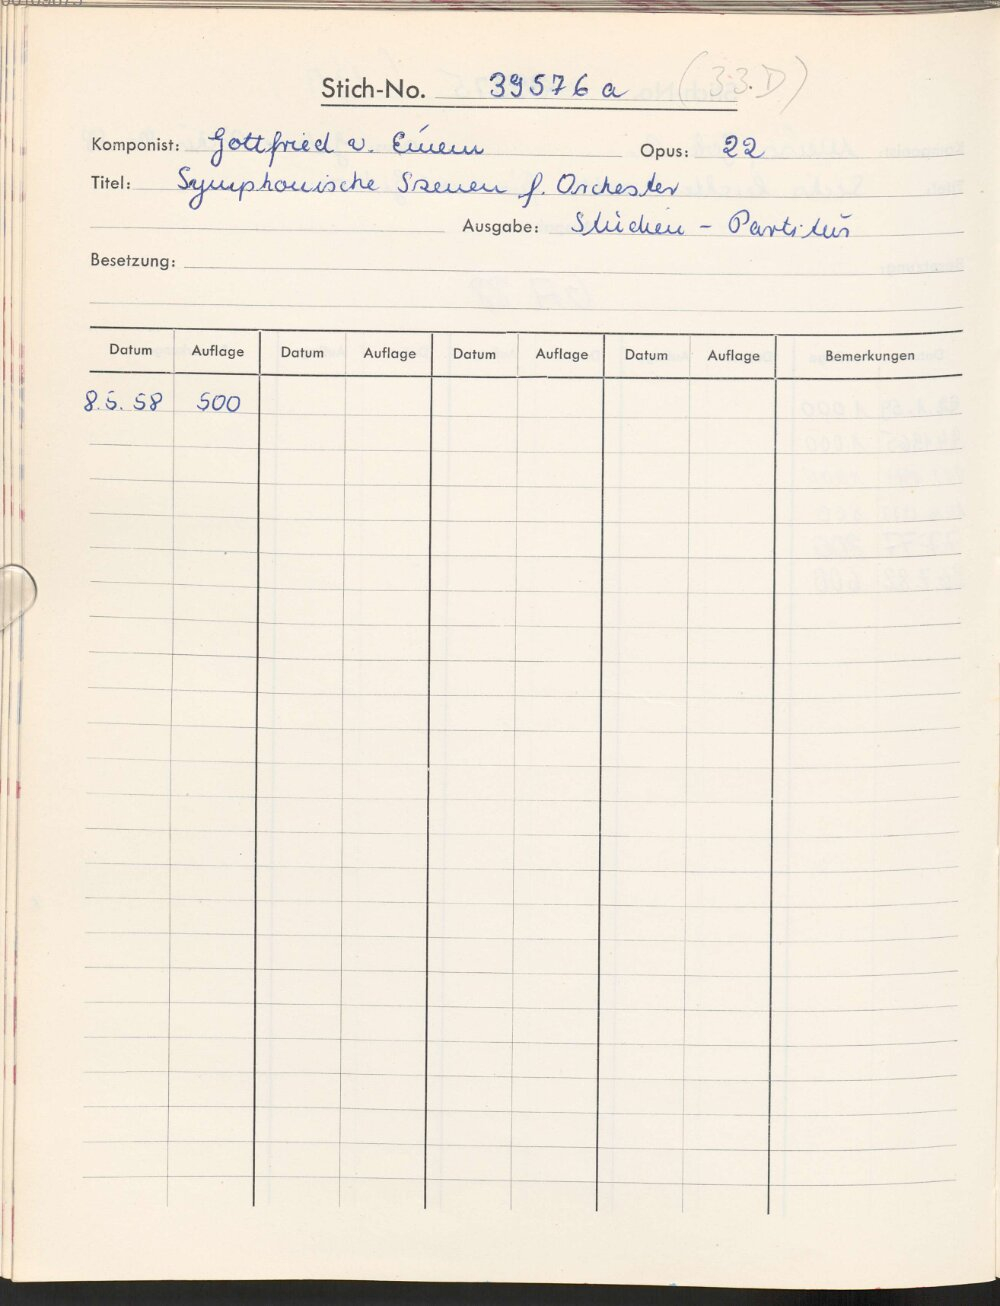 Stich-No. 39576 a (3.3.D)
Komponist: Gottfried v. Einem Opus: 22
Titel: Symphonische Szenen f. Orchester
Ausgabe: Studien - Partitur
Besetzung:
Datum Auflage Datum Auflage Datum Auflage Datum Auflage Bemerkungen
8.5.58 500